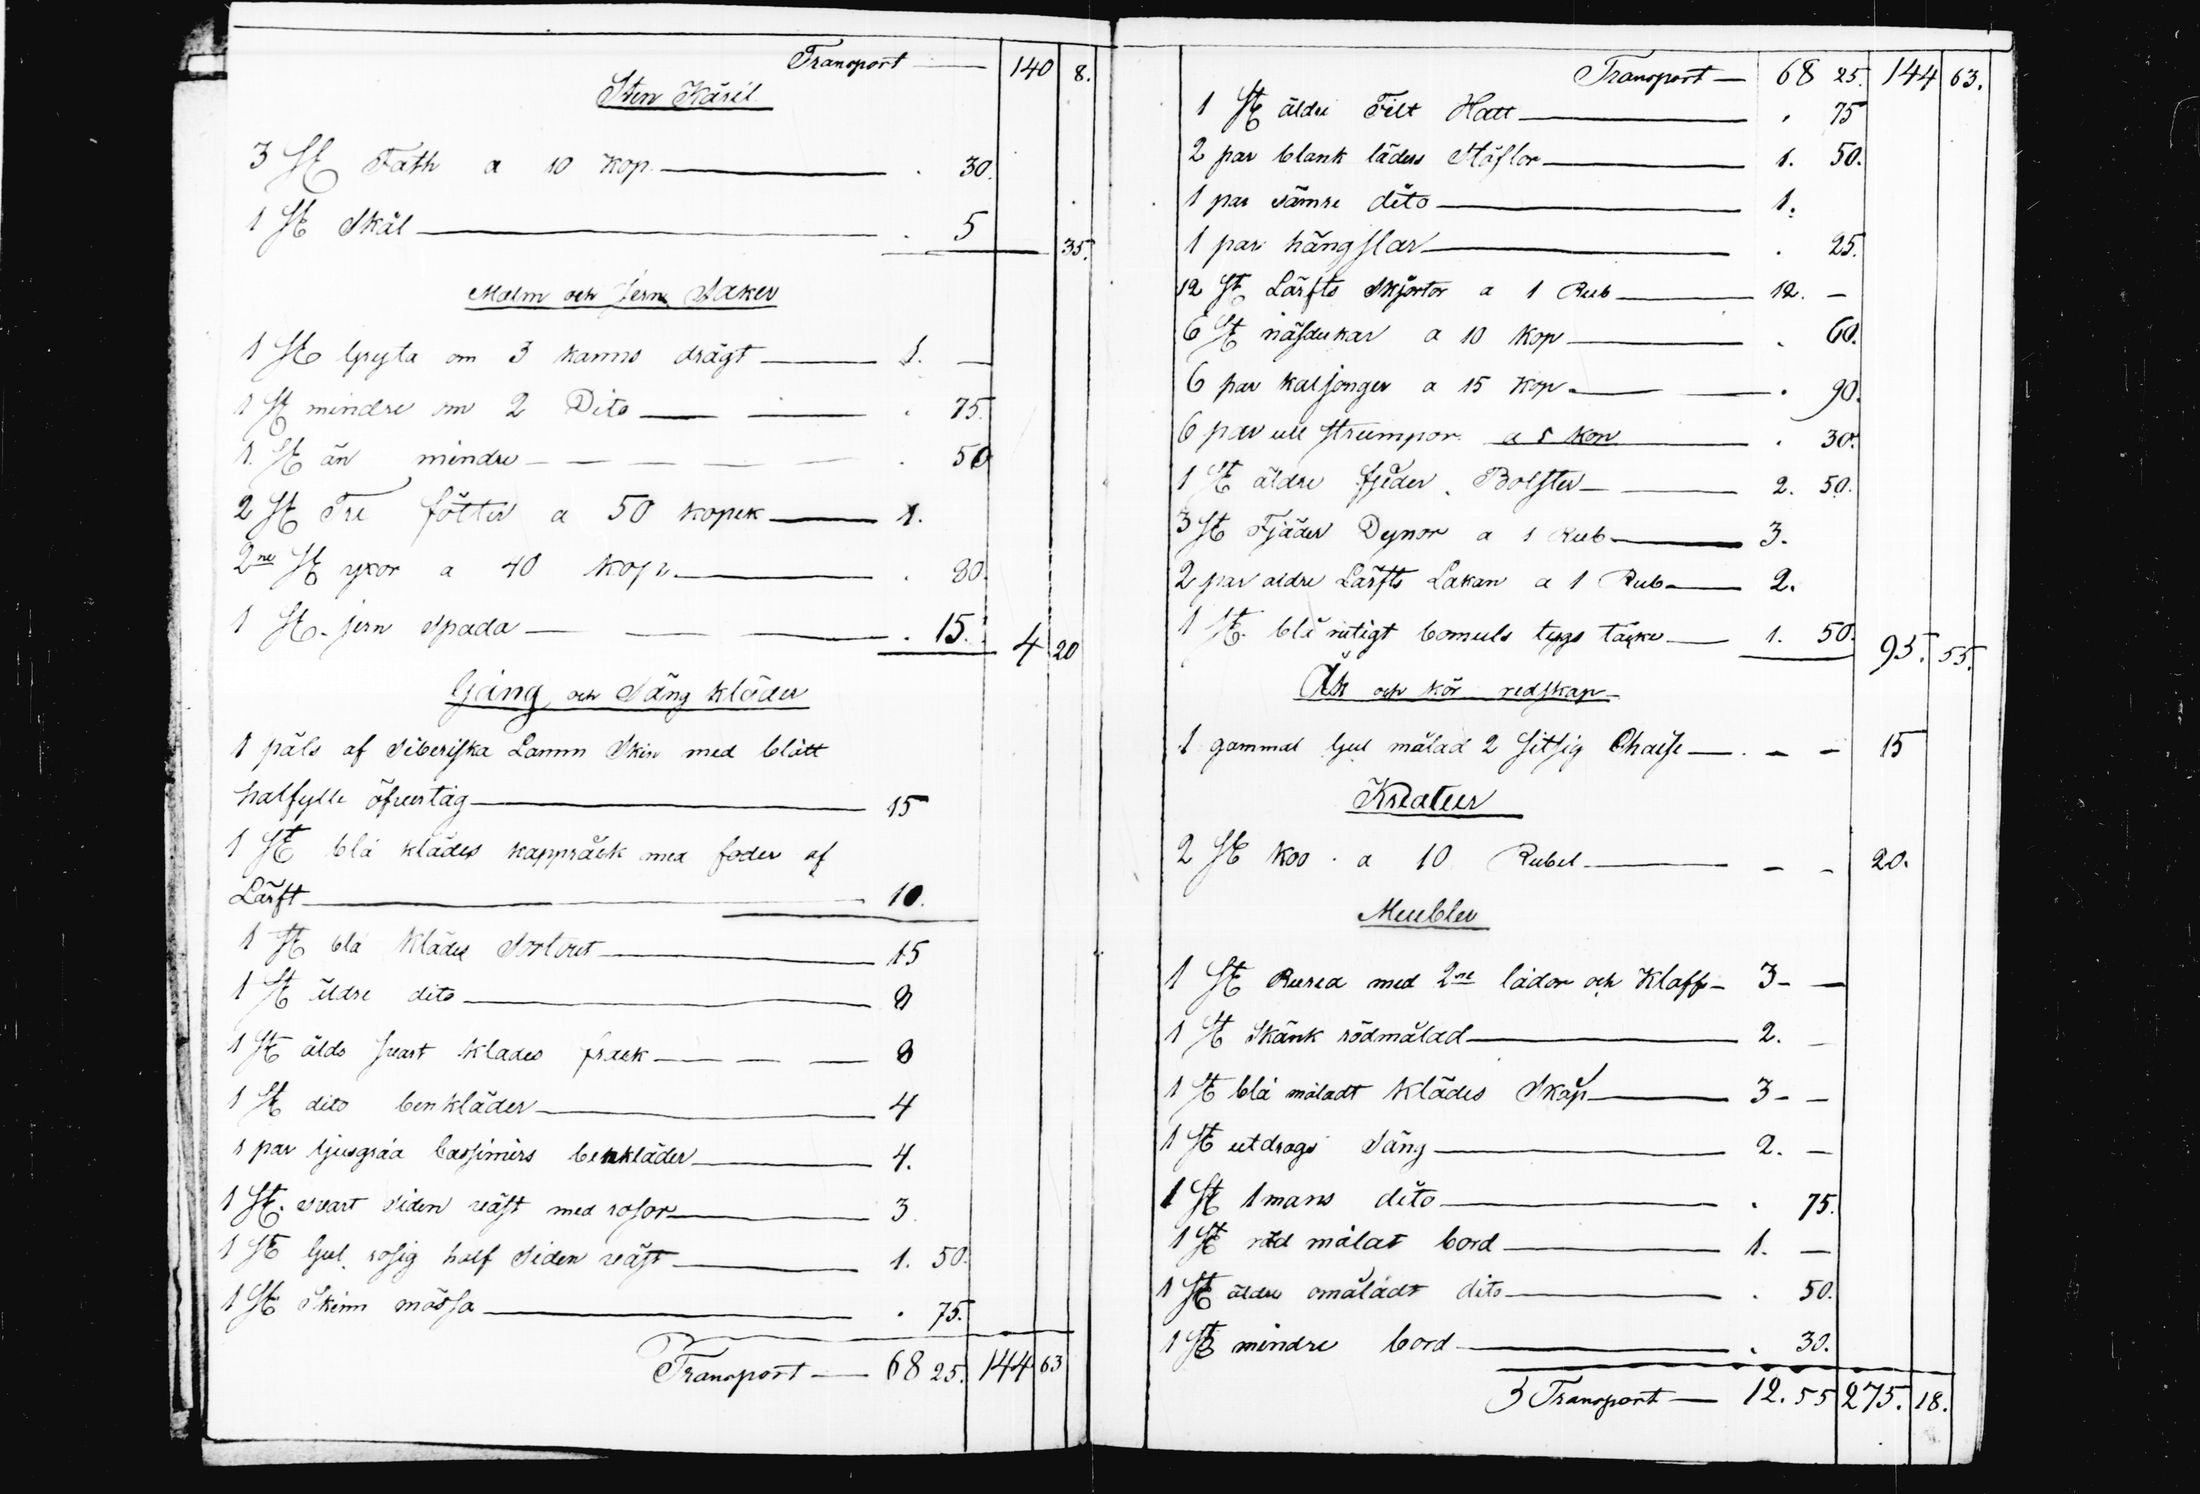 Transport — 140 8.
Sten Käril
3 St Fath a 10 kop. — . 30.
1 St Skål — . 5 35.
Malm och Jern Saker
1 St Gryta om 3 kanns drägt — 1. —
1 St mindre om 2 Dito — . 75.
1. St än mindre — . 50
2 St Tre fötter a 50 kopek — 1.
2ne St yxor a 40 kop. — . 80.
1 St. jern Spada — . 15. 4 20
Gång och Säng kläder
1 päls af Siberiska Lamm Skin med blått
halfylle öfvertåg — 15
1 St blå klädes kappråck med foder af
Lärft — 10.
1 St blå klädes Sortout — 15
1 St äldre dito — 8
1 St älds svart klades frack — 8
1 St dito benkläder — 4
1 par ljusgråa Cassimirs benkläder — 4.
1 St. svart siden väst med rosor — 3
1 St Gul rosig half siden väst — 1. 50.
1 St Skinn mössa — . 75.
Transport — 68 25. 144 63
Transport — 68 25. 144 63.
1 St äldre Filt Hatt — . 75
2 par blank läders Stöflor — 1. 50.
1 par sämre dito — 1.
1 par hängslar — . 25.
12 St Lärfts Skjortor a 1 Rub — 12. —
6 St näsdukar a 10 kop — . 60.
6 par kalsonger a 15 kop. — . 90.
6 par ull strumpor a 5 kop — . 30.
1 St äldre fjeder Bolster — 2. 50.
3 St Fjäder Dynor a 1 Rub — 3.
2 par äldre Lärfts Lakan a 1 Rub — 2.
1 St. blå rutigt bomuls tygs täcke — 1. 50. 93. 55.
Åk och kör redskap
1 gammal Gul målad 2 sitsig Chaise — . — — 15
Kreatur
2 St koo . a 10 Rubel — — — 20.
Meubler
1 St med 2ne lådor och Klaff — 3 — —
1 St Skänk rödmålad — 2. —
1 St blå måladt klädes Skåp — 3 — —
1 St utdrags Säng — 2. —
1 St 1mans dito — . 75.
1 St röd målat bord — 1. —
1 St äldre omåladt dito — . 50.
1 St mindre bord — . 30.
Transport — 12. 55 275. 18.